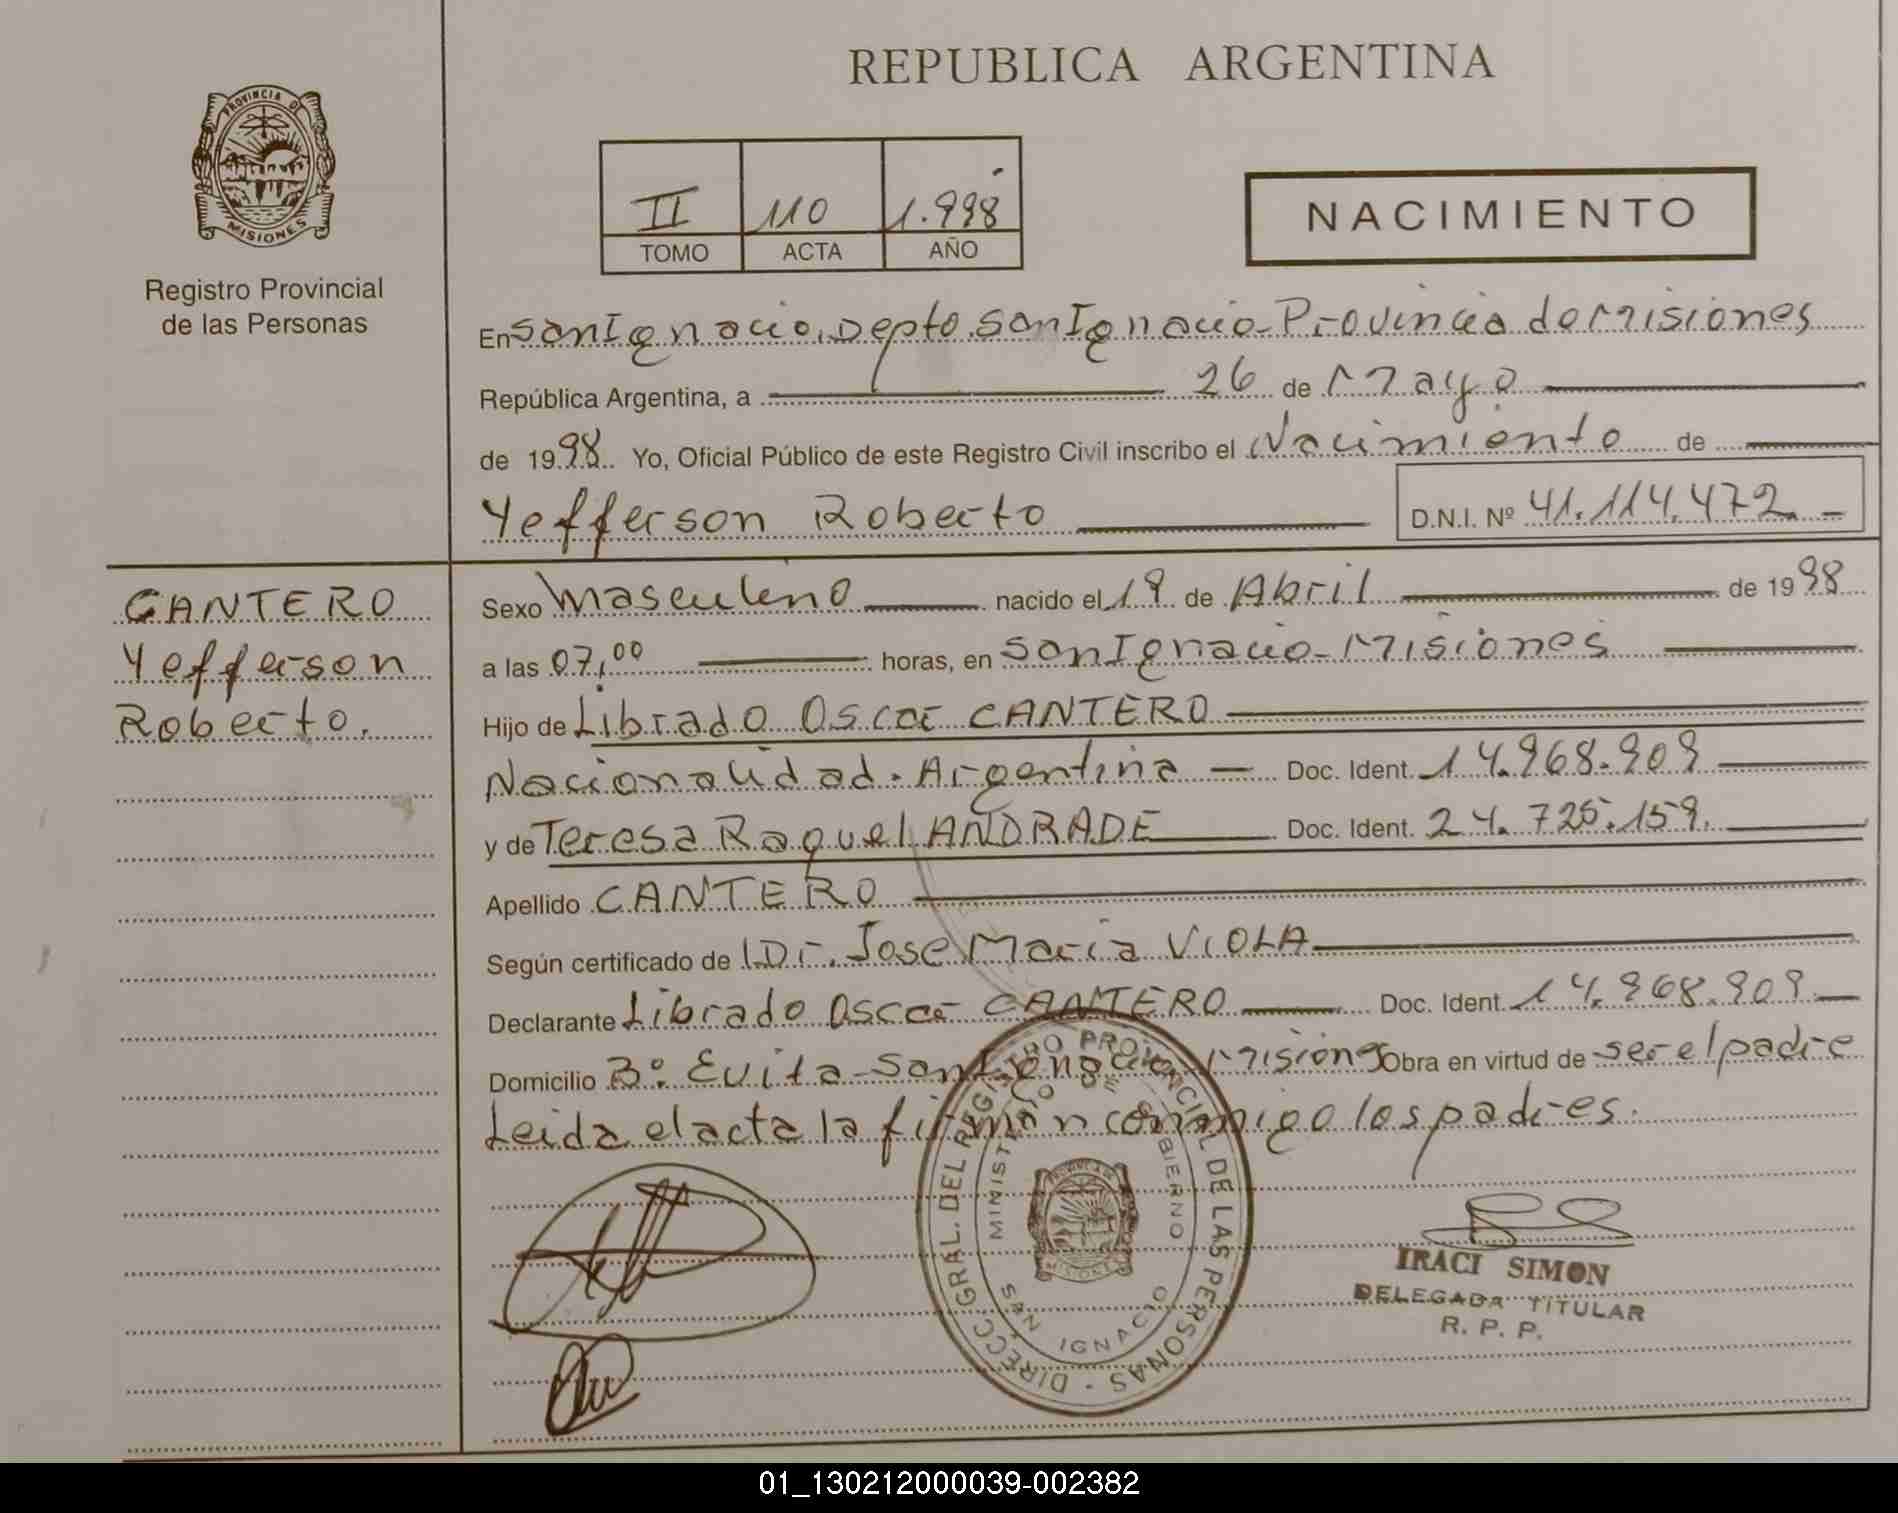 REPUBLICA ARGENTINA
PROVINCIA DE
MISIONES
Registro Provincial
de las Personas
II 110 1.998
TOMO ACTA AÑO
NACIMIENTO
En San Ignacio, Depto. San Ignacio - Provincia de Misiones
República Argentina, a 26 de Mayo
de 1998. Yo, Oficial Público de este Registro Civil inscribo el Nacimiento de
Yefferson Roberto D.N.I. Nº 41.114.472.-
CANTERO
Yefferson
Roberto.
Sexo Masculino nacido el 19 de Abril de 1998
a las 07,00 horas, en San Ignacio - Misiones
Hijo de Librado Oscar CANTERO
Nacionalidad. Argentina - Doc. Ident. 14.968.909
y de Teresa Raquel ANDRADE Doc. Ident. 24.725.159.
Apellido CANTERO
Según certificado de Dr. Jose Maria VIOLA
Declarante Librado Oscar CANTERO Doc. Ident. 14.968.909
Domicilio Bº. Evita - San Ignacio Misiones Obra en virtud de ser el padre
Leida el acta la firman conmigo los padres.
DIRECC. GRAL. DEL REGISTRO PROVINCIAL DE LAS PERSONAS
MINISTERIO DE GOBIERNO
SAN IGNACIO
MISIONES
IRACI SIMON
DELEGADA TITULAR
R. P. P.
01_130212000039-002382